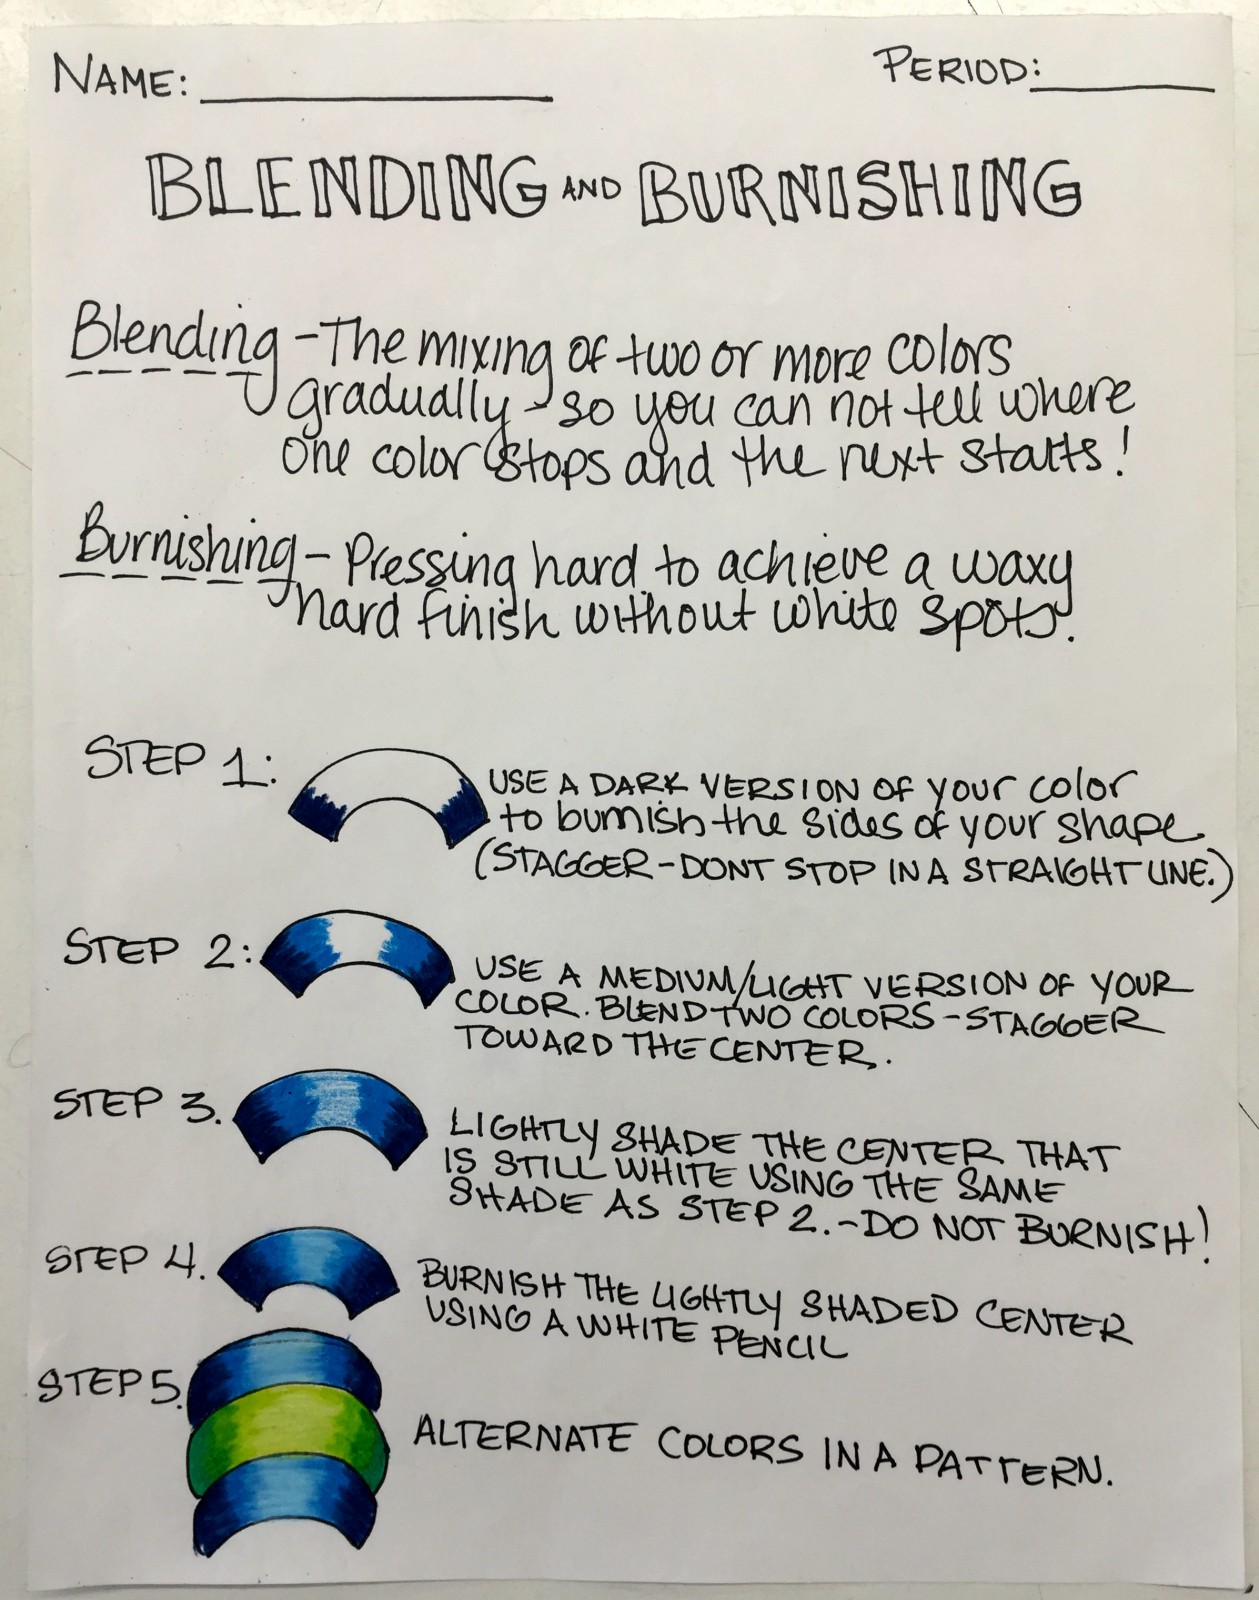 NAME: ____________ PERIOD: ______
BLENDING AND BURNISHING
Blending - The mixing of two or more colors
gradually - so you can not tell where
one color stops and the next starts!
Burnishing - Pressing hard to achieve a waxy
hard finish without white spots.
STEP 1: USE A DARK VERSION OF your color
to burnish the sides of your shape
(STAGGER - DONT STOP IN A STRAIGHT LINE.)
STEP 2: USE A MEDIUM/LIGHT VERSION OF YOUR
COLOR. BLEND TWO COLORS - STAGGER
TOWARD THE CENTER.
STEP 3. LIGHTLY SHADE THE CENTER THAT
IS STILL WHITE USING THE SAME
SHADE AS STEP 2. - DO NOT BURNISH!
STEP 4. BURNISH THE LIGHTLY SHADED CENTER
USING A WHITE PENCIL
STEP 5. ALTERNATE COLORS IN A PATTERN.